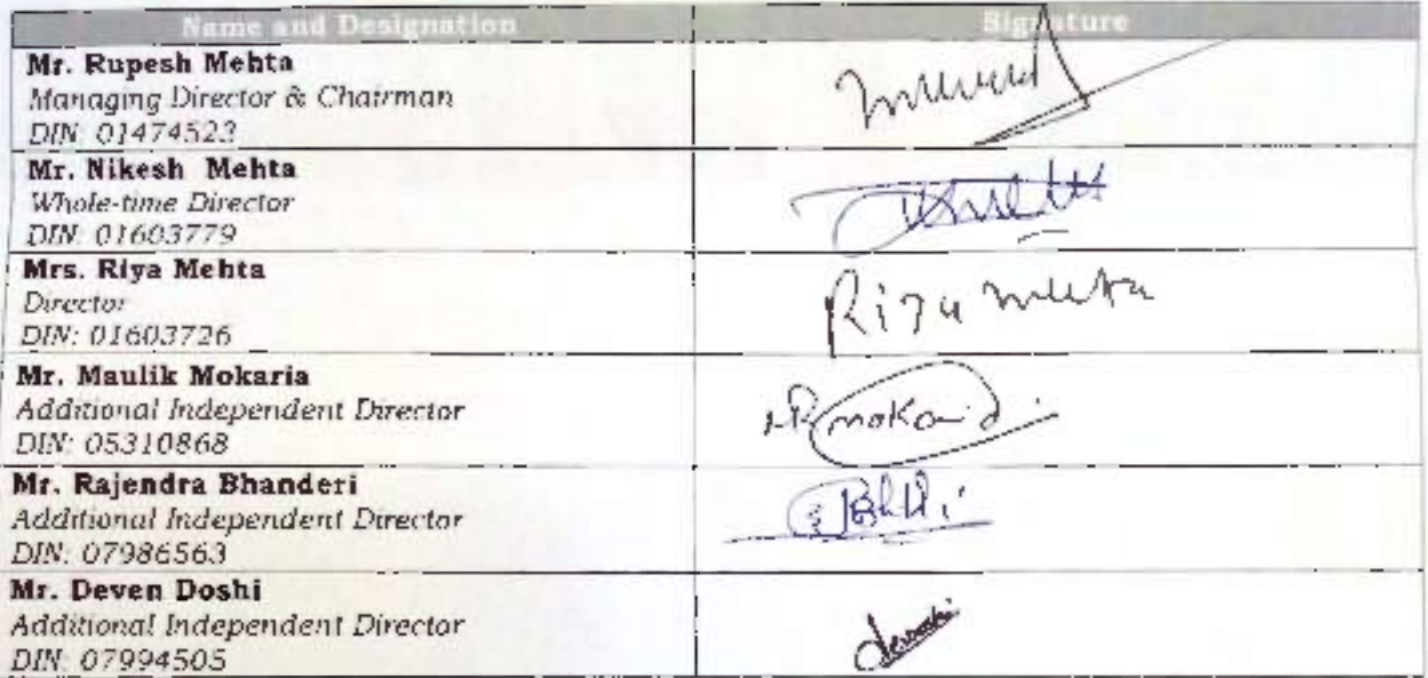 Name and Designation Signature
Mr. Rupesh Mehta
Managing Director & Chairman
DIN: 01474523
Mr. Nikesh Mehta
Whole-time Director
DIN: 01603779
Mrs. Riya Mehta
Director
DIN: 01603726
Riya Mehta
Mr. Maulik Mokaria
Additional Independent Director
DIN: 05310868
Mr. Rajendra Bhanderi
Additional Independent Director
DIN: 07986563
Mr. Deven Doshi
Additional Independent Director
DIN: 07994505